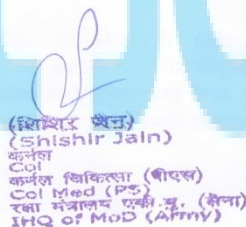 (शिशिर जैन)
(Shishir Jain)
कर्नल
Col
कर्नल चिकित्सा (पीएस)
Col Med (PS)
रक्षा मंत्रालय एकी.मु. (सेना)
IHQ of MoD (Army)